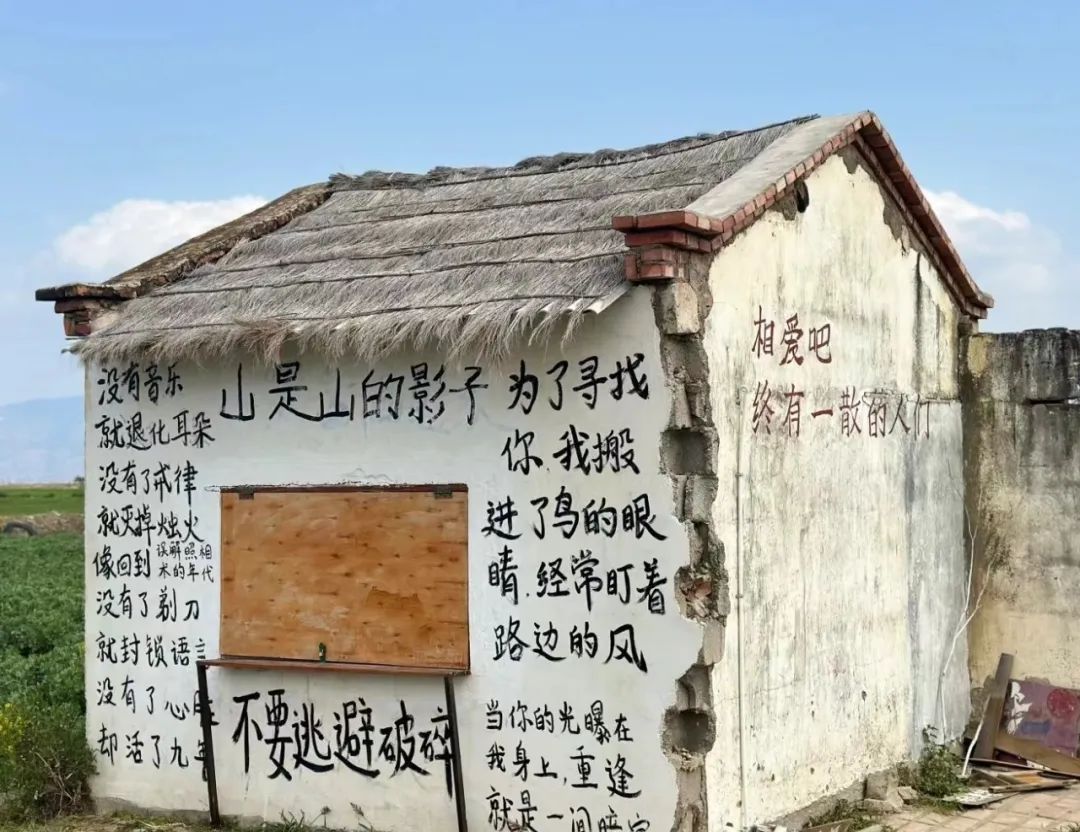 没有音乐
就退化耳朵
没有了戒律
就灭掉烛火
像回到误解照相
术的年代
没有了剃刀
就封锁语言
没有了心
却活了九
山是山的影子
不要逃避破碎
为了寻找
你,我搬
进了鸟的眼
睛,经常盯着
路边的风
当你的光曝在
我身上,重逢
就是一间暗室
相爱吧
终有一散的人们